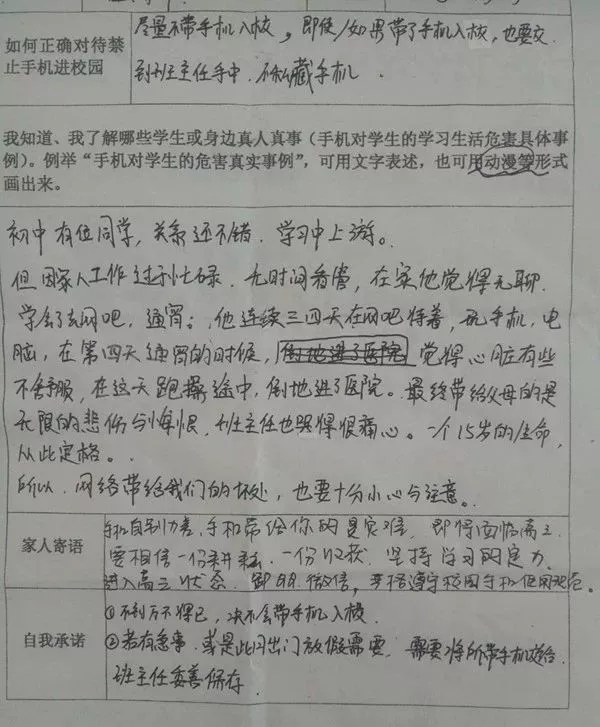 如何正确对待禁
止手机进校园
尽量不带手机入校，即使/如果带了手机入校，也要交
到班主任手中，不私藏手机．
我知道、我了解哪些学生或身边真人真事（手机对学生的学习生活危害具体事
例）。例举“手机对学生的危害真实事例”，可用文字表述，也可用动漫等形式
画出来。
初中有位同学，关系还不错．学习中上游。
但因家人工作过于忙碌．无时间看管，在家他觉得无聊．
学会了去网吧，通宵；他连续三四天在网吧待着，玩手机，电
脑，在第四天通宵的时候，倒地进了医院 觉得心脏有些
不舒服，在这天跑操途中，倒地进了医院。最终带给父母的是
无限的悲伤与悔恨．班主任也哭得很痛心。一个15岁的生命，
从此定格。
所以．网络带给我们的坏处，也要十分小心与注意。
家人寄语
自制力差，手机带给你的是灾难．即将面临高三．
要相信一份耕耘．一份收获．坚持学习的定力．
进入高三状态．卸QQ．微信，严格遵守校园手机使用规范。
自我承诺
①不到万不得已，决不会带手机入校．
②若有急事．或是此月出门放假需要．需要将所带手机送给
班主任妥善保存．